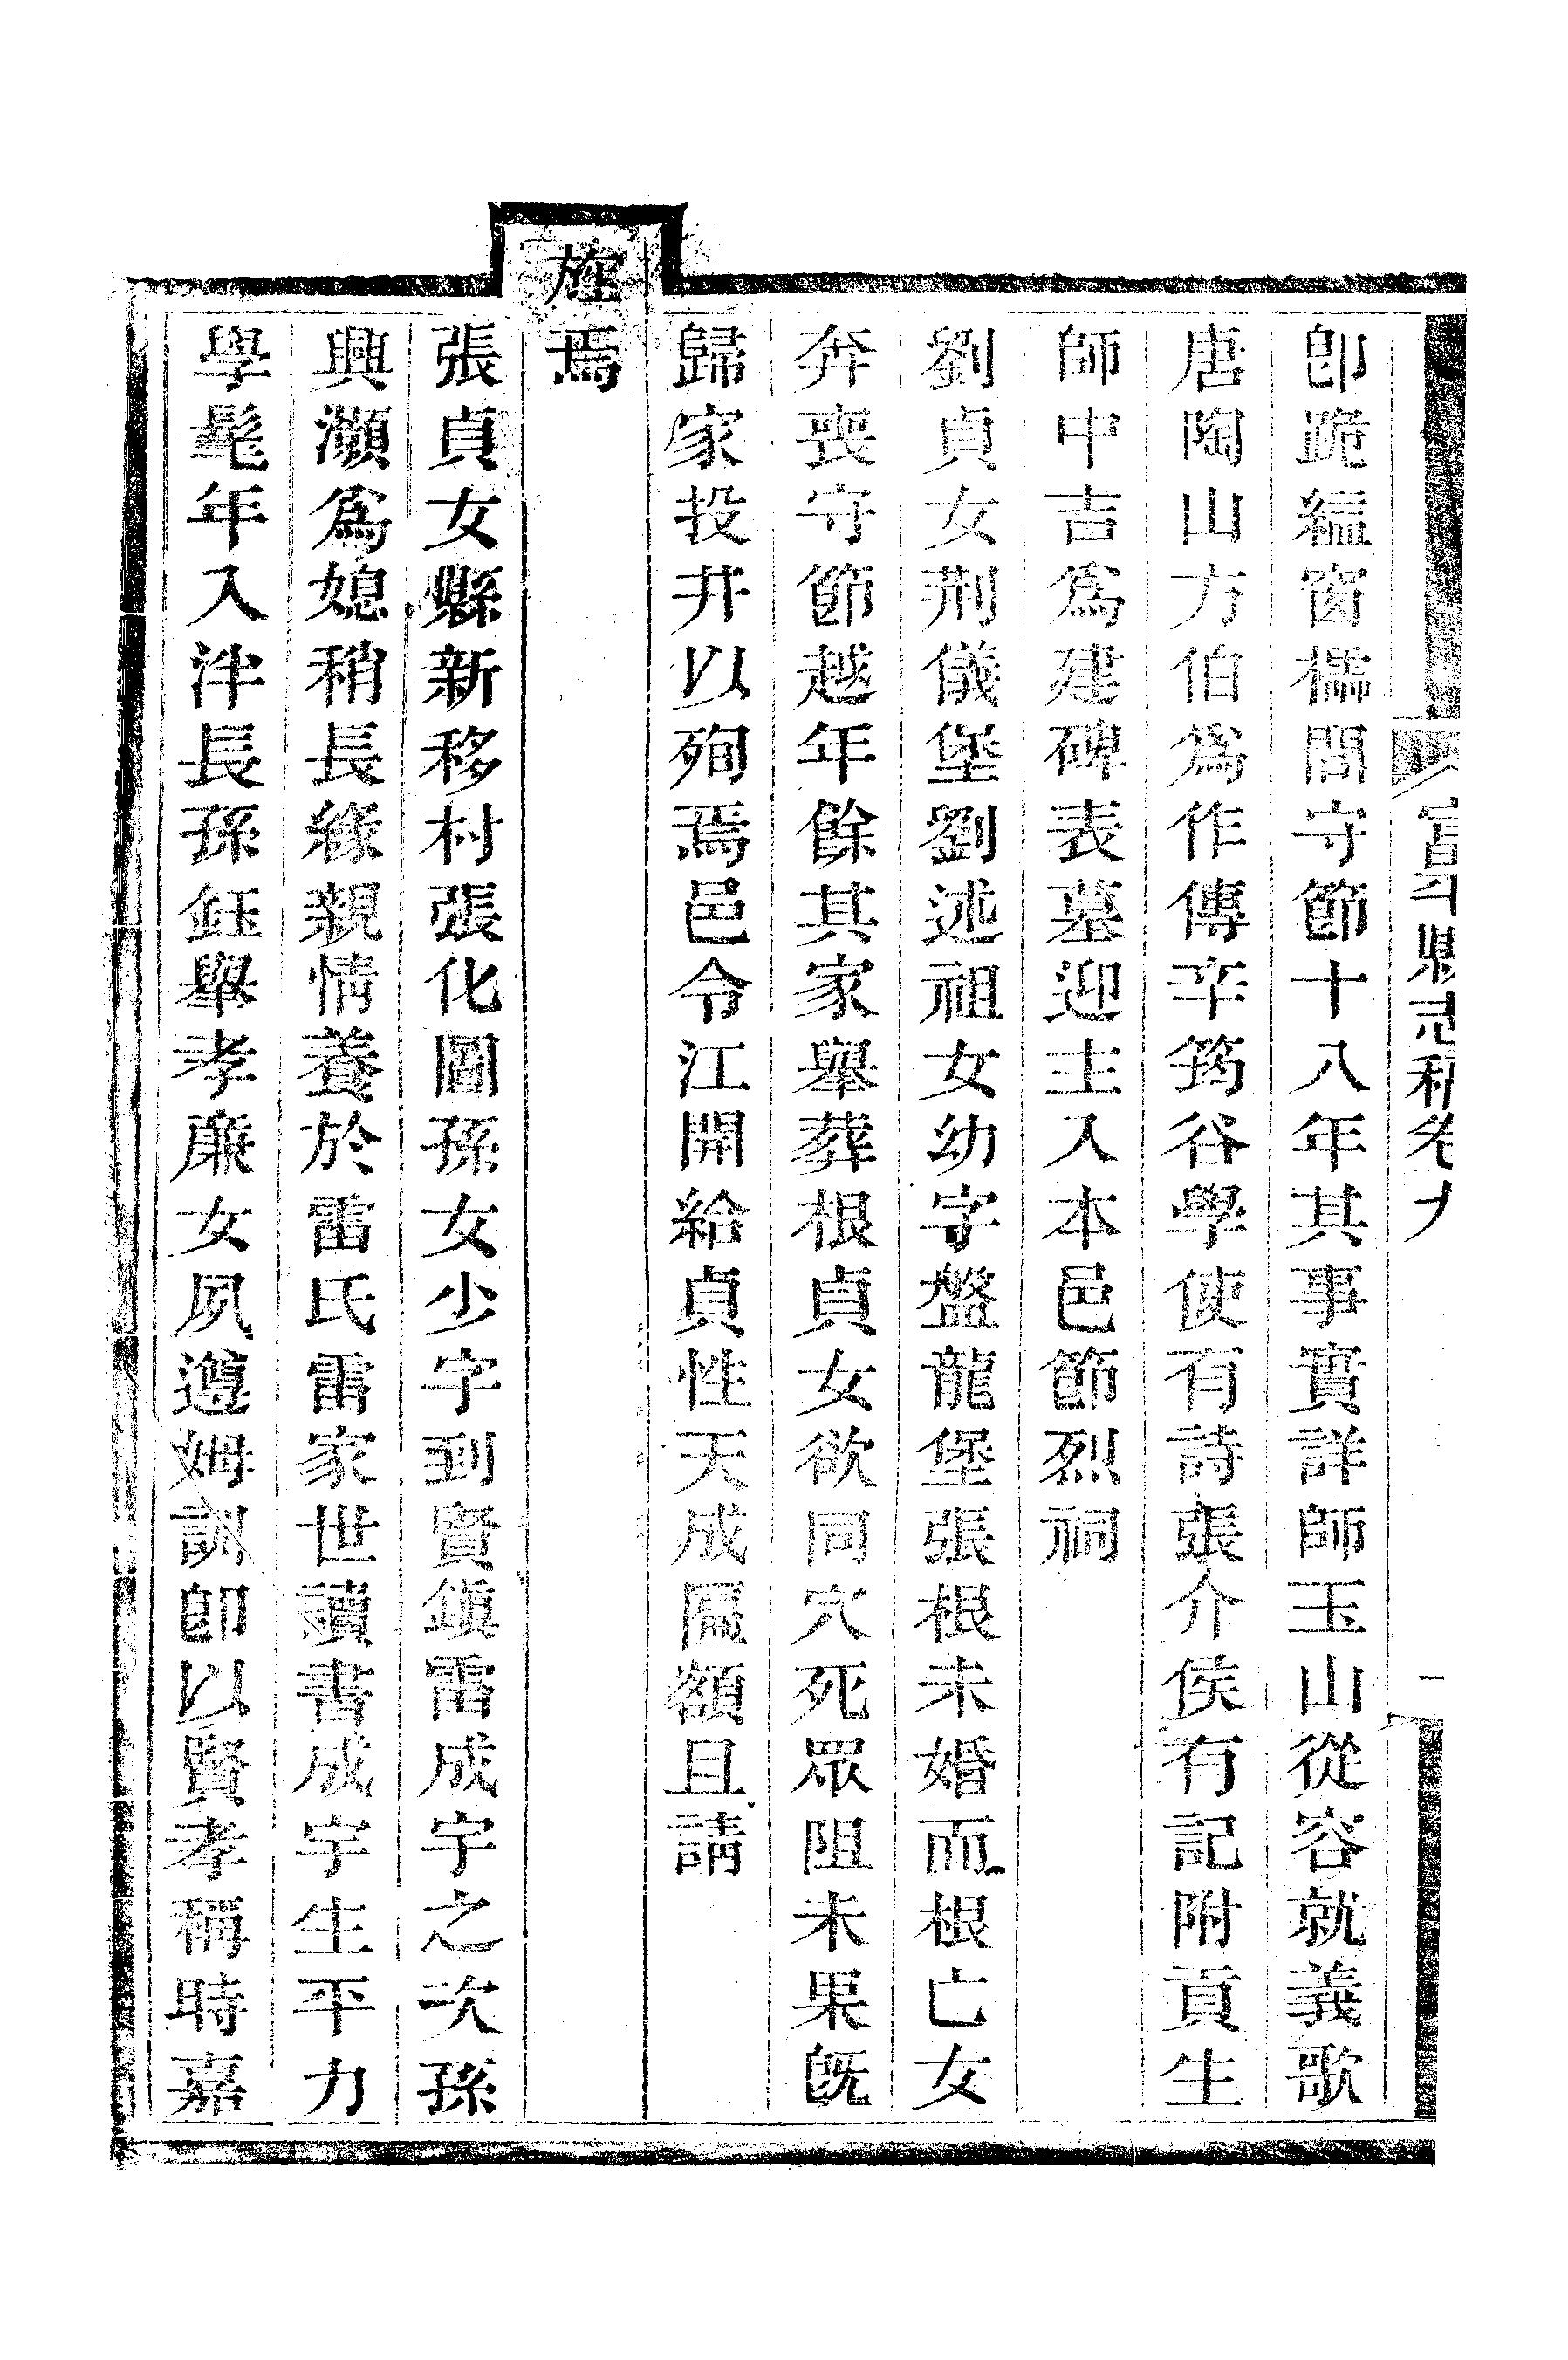 富平縣志稿卷九
卽跪縊窗櫺間守節十八年其事實詳師玉山從容就義歌
唐陶山方伯爲作傳辛筠谷學使有詩張介侯有記附貢生
師中吉爲建碑表墓迎主入本邑節烈祠
劉貞女荆儀堡劉述祖女幼字盤龍堡張根未婚而根亡女
奔喪守節越年餘其家舉葬根貞女欲同穴死眾阻未果旣
歸家投井以殉焉邑令江開給貞性天成匾額且請
旌焉
張貞女縣新移村張化圖孫女少字到賢鎮雷成宇之次孫
興灝爲媳稍長緣親情養於雷氏雷家世讀書成宇生平力
學髦年入泮長孫鈺舉孝廉女夙遵姆訓卽以賢孝稱時嘉